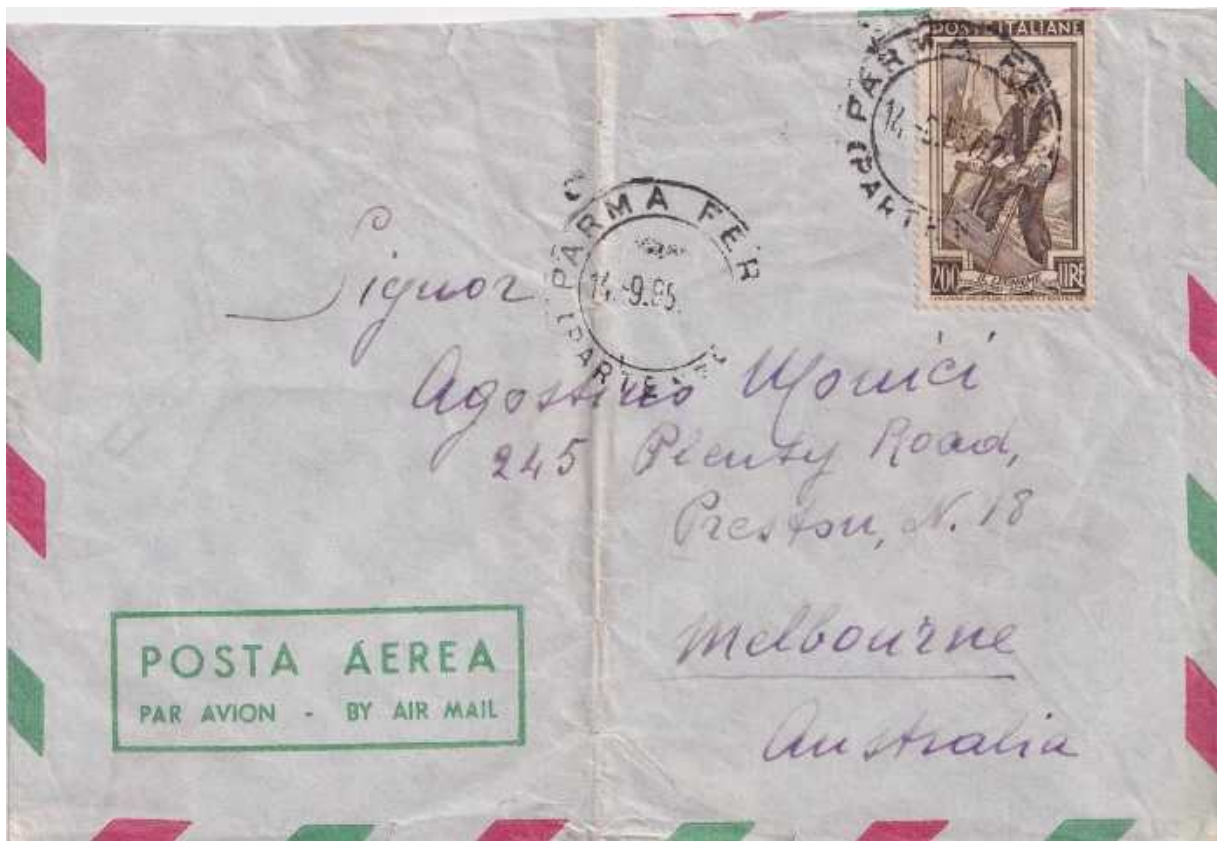 POSTE ITALIANE
PARMA FE
14.-9.
(PARTEN
200 LIRE
PARMA FER
14.-9.55.
(PARTENZE
Signor
Agostino Monici
245 Plenty Road,
Preston, N. 18
Melbourne
Australia
POSTA AEREA
PAR AVION - BY AIR MAIL